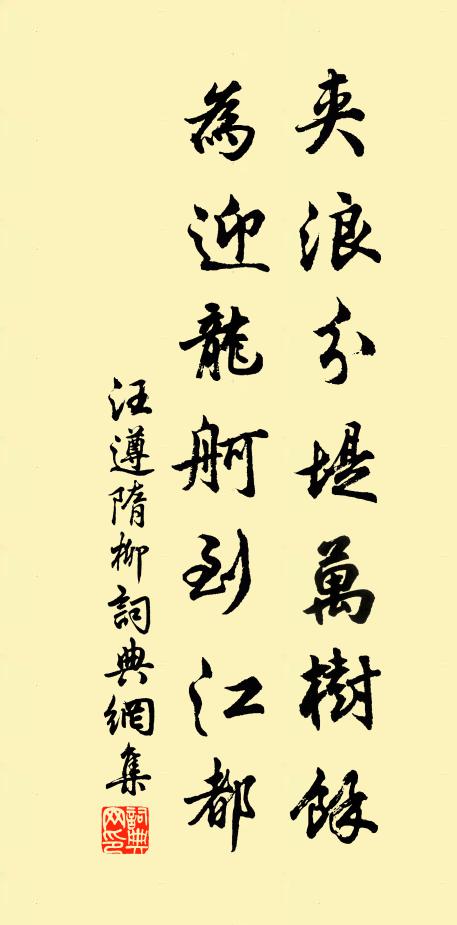 夾浪分堤萬樹餘
為迎龍舸到江都
汪遵隋柳詞典網集
詞典網印